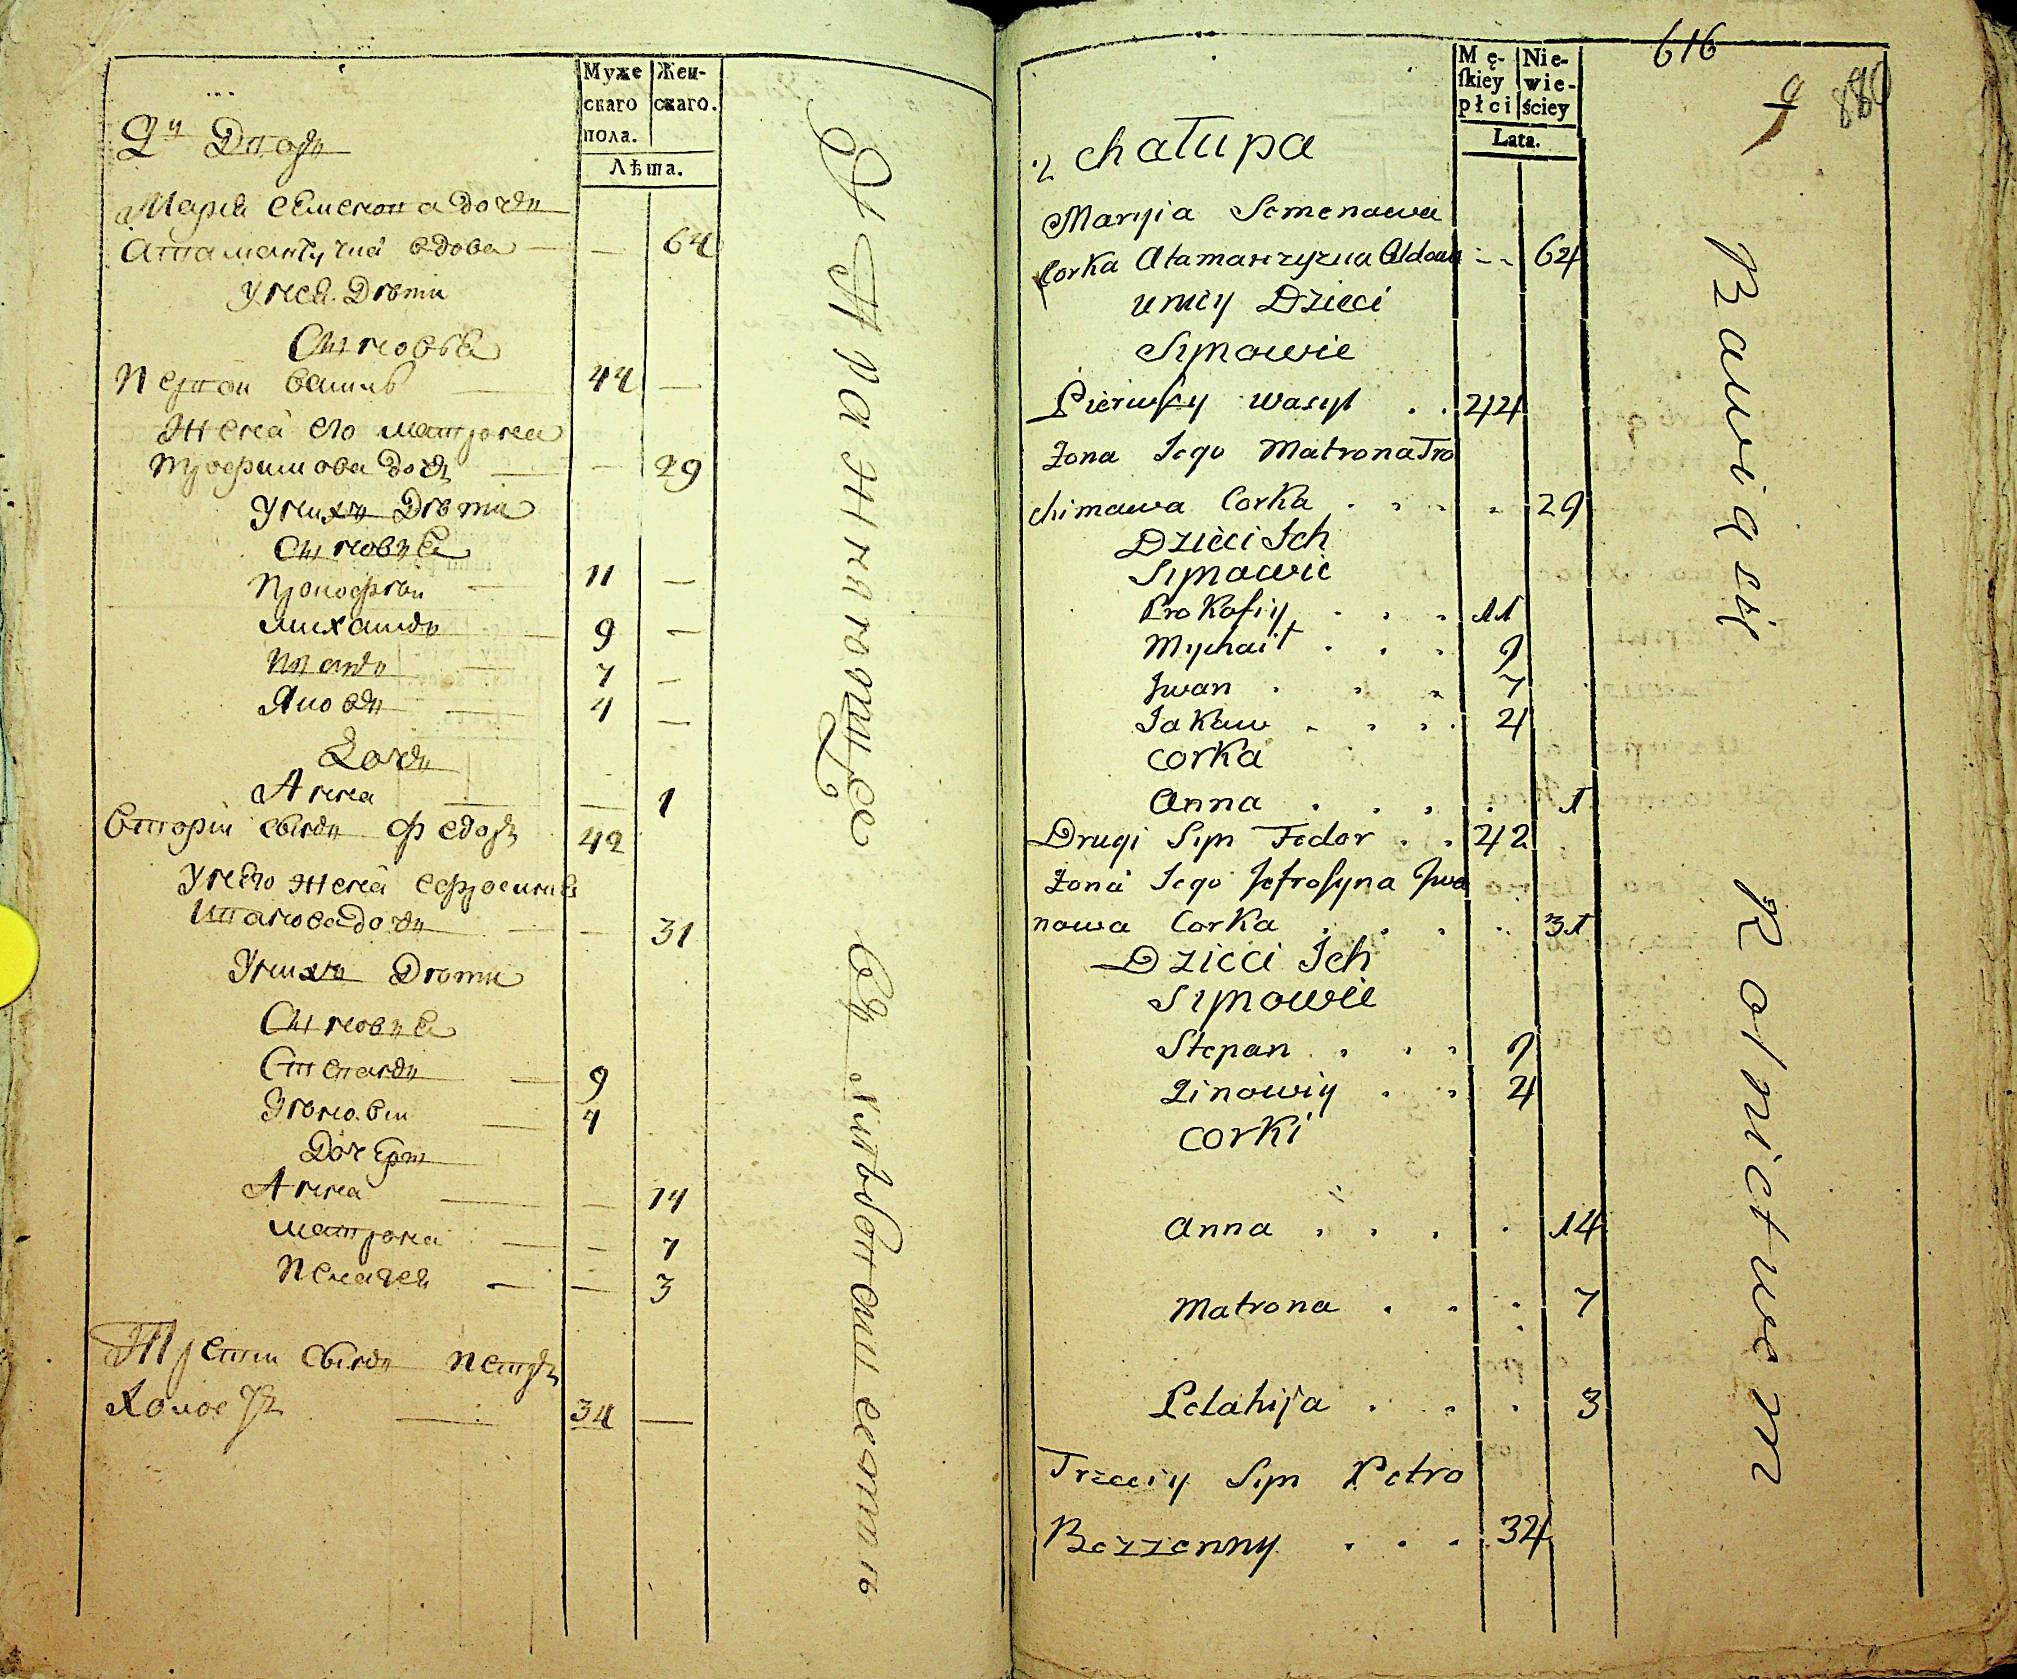 Муже
скаго
пола.
Жен-
скаго.
Лѣта.
2й Дворъ
Марія Семенова дочь
Атаманчучка вдова — — 64
У нея Дѣти
Сыновья
Первой Василь — 44 —
Жена его Матрона
Трофимова дочь — — 29
У нихъ Дѣти
Сыновья
Прокофій — 11 —
Михаилъ — 9 —
Иванъ — 7 —
Яковъ — 4 —
Дочь
Анна — — 1
Вторый сынъ Федоръ 42
У него жена Ефросинія
Иванова дочь — — 31
У нихъ Дѣти
Сыновья
Степанъ — 9
Зѣновій — 4
Дочери
Анна — — 14
Матрона — — 7
Пелагея — — 3
Третій сынъ Петръ
Холостъ — 34 —
Упражняются въ хлѣбопашествѣ
616
880
Mę-
skiey
płci
Nie-
wie-
ściey
Lata.
2 chałupa
Maryia Semenowa
Corka Atamanczyzna Wdowa - - 64
u niey Dzieci
Synowie
Pierwszy Wasyl . . 44
Żona Jego Matrona Tro
chimawa Corka . . . . 29
Dzieci Ich
Synowie
Prokofiy . . . 11
Mychaił . . . 9
Jwan . . . 7
Jakow . . . . 4
corka
Anna . . . . 1
Drugi Syn Fedor . . 42
Żona Jego Jefrosyna Jwa
nowa Corka . . . . 31
Dzieci Ich
Synowie
Stepan . . . 9
Zinowiy . . 4
corki
Anna . . . . 14
Matrona . . . 7
Pelahija . . . 3
Trzeciy Syn Petro
Bezzenny . . . 34
Bawią się Rolnictwem